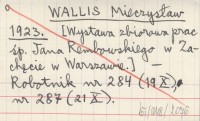 WALLIS Mieczysław
1923. [Wystawa zbiorowa prac
śp. Jana Rembowskiego w Za-
chęcie w Warszawie.] —
Robotnik nr 284 (19 X),
nr 287 (21 X).